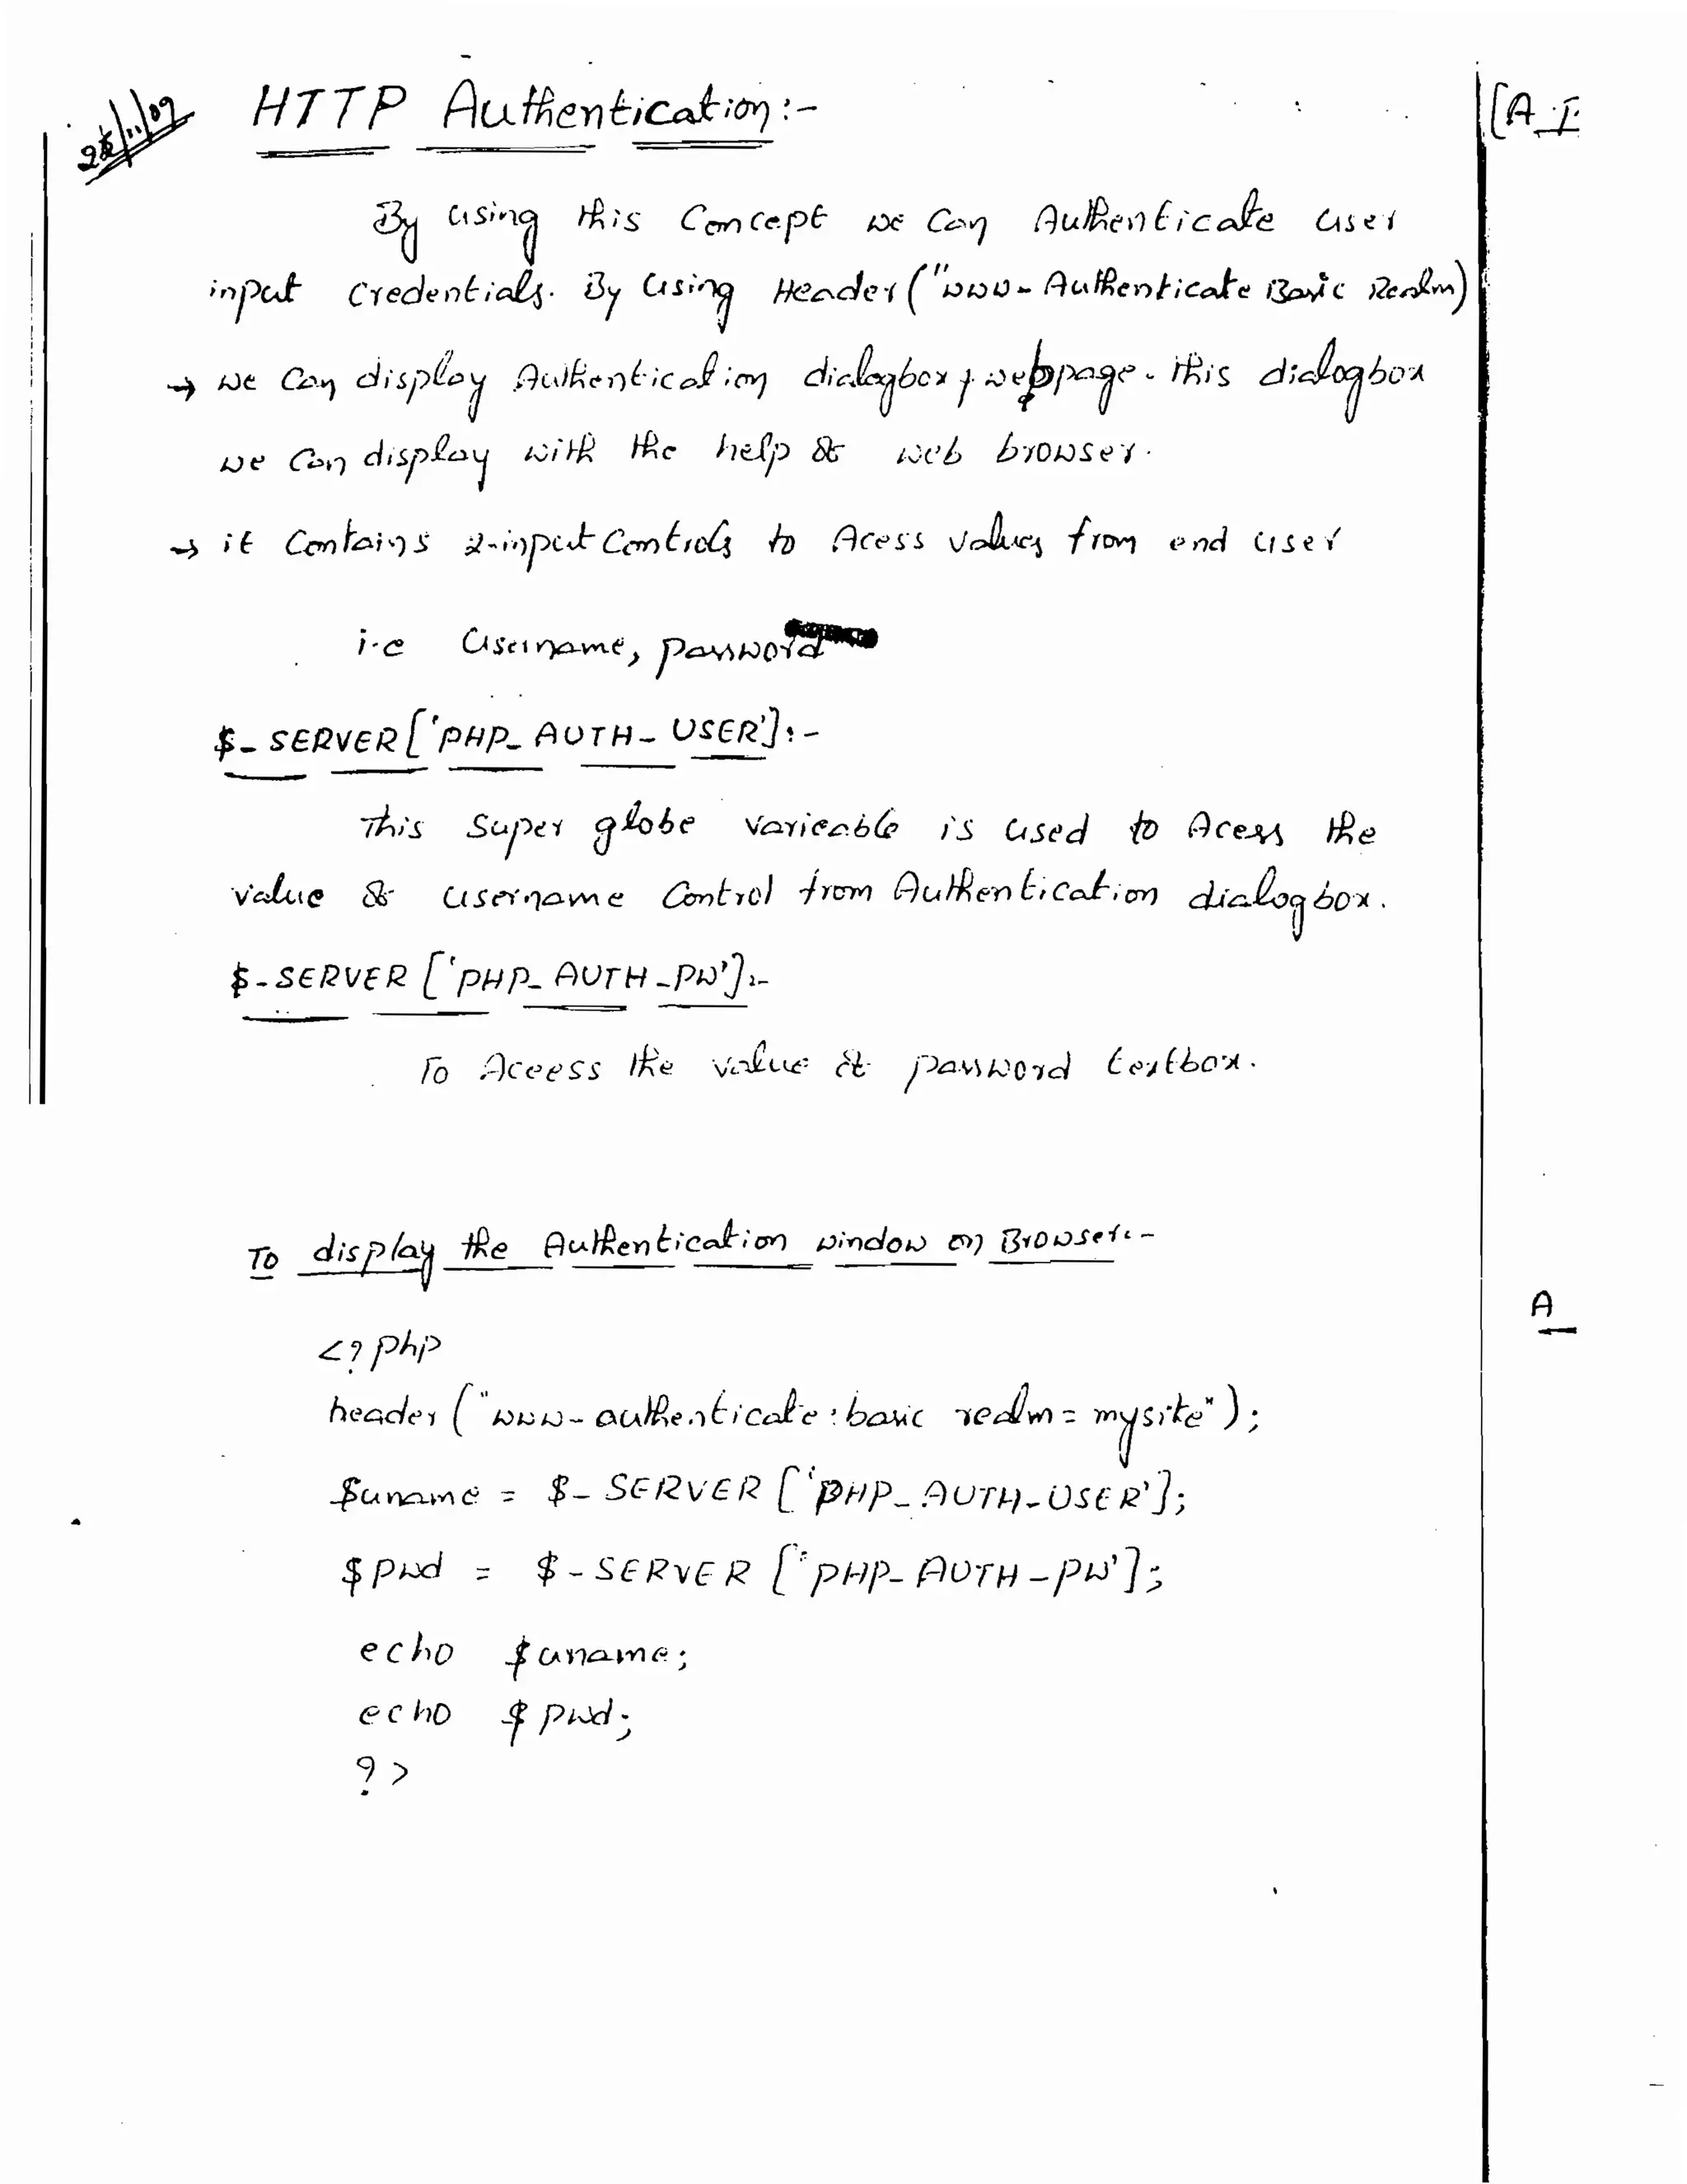 HTTP Authentication :-
By using this Concept we can Authenticate user
input credentials. By using Header("www-Authenticate Basic Realm)
→ we can display Authentication dialogbox webpage. this dialogbox
we can display with the help of web browser.
→ it Contains 2-input Controls to Acess values from end user
i.e Username, password
$_SERVER['PHP_AUTH_USER']:-
This super globe varieable is used to Acess the
value of username Control from Authentication dialogbox.
$_SERVER['PHP_AUTH_PW']:-
To Aceess the value of password textbox.
To display the Authentication window on Browser:-
<?php
header("www-authenticate:basic realm=mysite");
$uname = $_SERVER['PHP_AUTH_USER'];
$pwd = $_SERVER['PHP_AUTH_PW'];
echo $uname;
echo $pwd;
?>
A